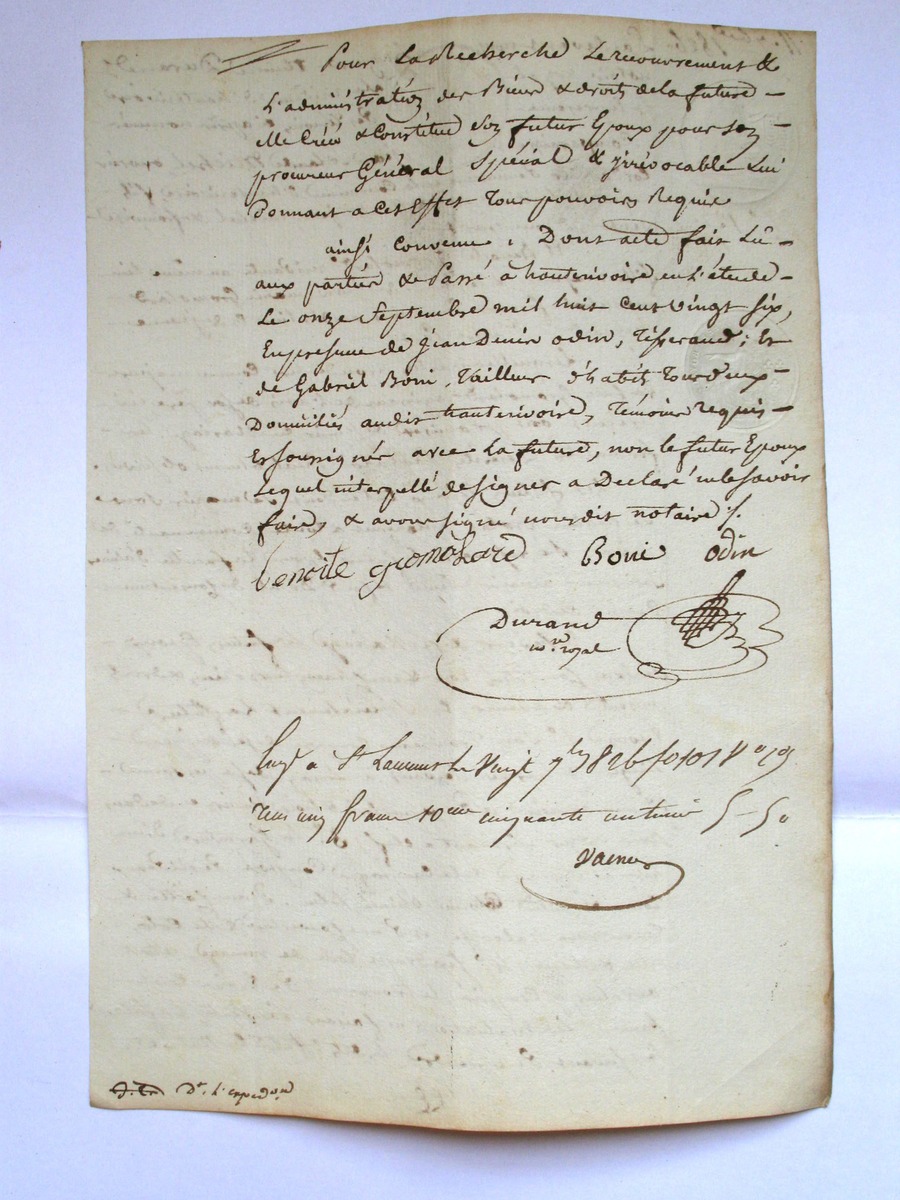 Pour La Recherche Le recouvrement &
L'administration des Biens & droits de la future
elle Créé & Constitue son futur Epoux pour son
procureur Général Spécial & irrévocable Lui
Donnant a Cet Effet Tous pouvoirs Requis
ainsi Convenu, Dont acte fait Lû
aux parties & Passé à hauterivoire en L'étude
Le onze Septembre mil huit Cent vingt Six,
En presence de jean Denis odin, Tisserand; Et
de Gabriel Boni, Tailleur d'habits Tous deux
Domiciliés audit hauterivoire, Témoins Requis
Et soussignés avec La future, non le futur Epoux
Lequel interpellé de signer a Declaré ne le savoir
faire, & avons signé nousdit notaire /.
benoite gromolard Boni odin
Durand
no.re royal
à St Laurent Le Vingt 7bre 1826 fo 101 Vo
cinq francs cinquante centimes 5-50
Dt. L'expedon